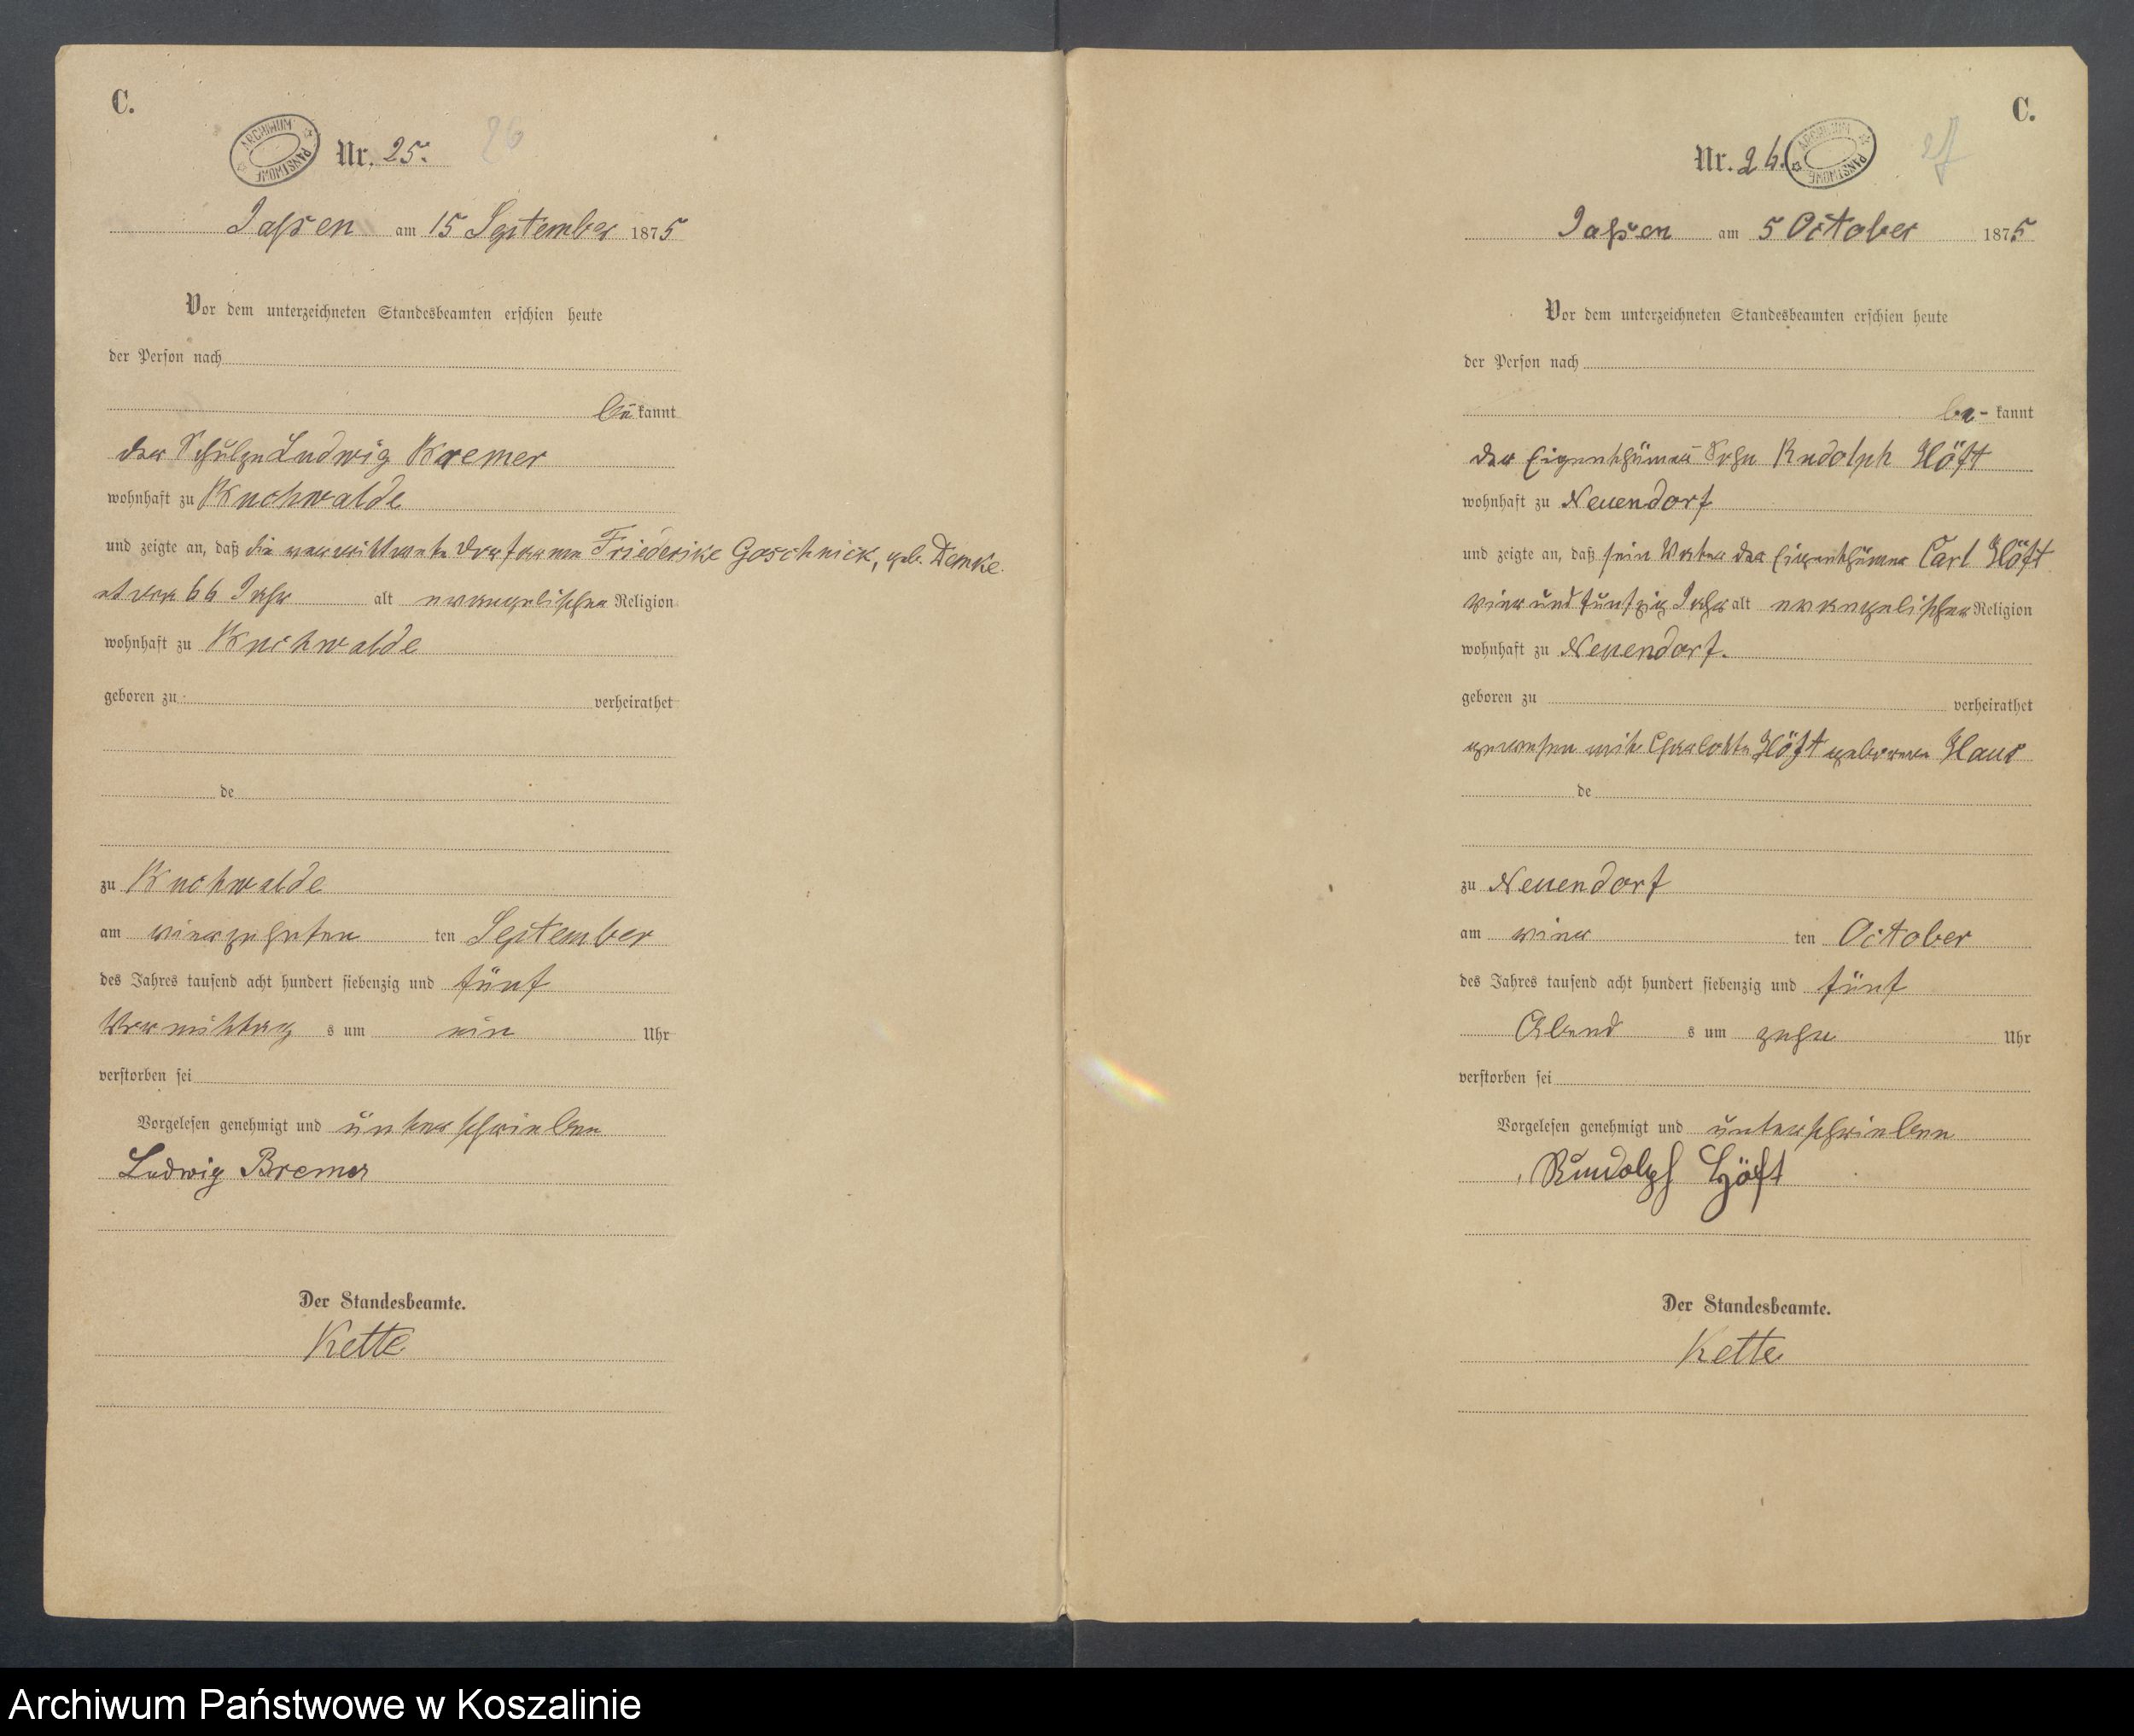 C.
ARCHIWUM PAŃSTWOWE
Nr. 25. 26
Jassen am 15 September 1875
Vor dem unterzeichneten Standesbeamten erschien heute
der Person nach
be kannt
der Schulze Ludwig Bremer
wohnhaft zu Buchwalde
und zeigte an, daß die verwittwete Dorfarme Friederike Goschnick, geb. Demke.
etwa 66 Jahr alt evangelischer Religion
wohnhaft zu Buchwalde
geboren zu verheirathet
de
zu Buchwalde
am vierzehnten ten September
des Jahres tausend acht hundert siebenzig und fünf
Vormittag s um ein Uhr
verstorben sei
Vorgelesen genehmigt und unterschrieben
Ludwig Bremer
Der Standesbeamte.
Kette
C.
Nr. 26. ARCHIWUM PAŃSTWOWE 27
Jassen am 5 October 1875
Vor dem unterzeichneten Standesbeamten erschien heute
der Person nach
be- kannt
der Eigenthümer-Sohn Rudolph Höft
wohnhaft zu Neuendorf
und zeigte an, daß sein Vater der Eigenthümer Carl Höft
vier und fünfzig Jahr alt evangelischer Religion
wohnhaft zu Neuendorf.
geboren zu verheirathet
gewesen mit Charlotte Höft geborene Haus
de
zu Neuendorf
am vier ten October
des Jahres tausend acht hundert siebenzig und fünf
Abend s um zehn Uhr
verstorben sei
Vorgelesen genehmigt und unterschrieben
Rudolph Höft
Der Standesbeamte.
Kette
Archiwum Państwowe w Koszalinie